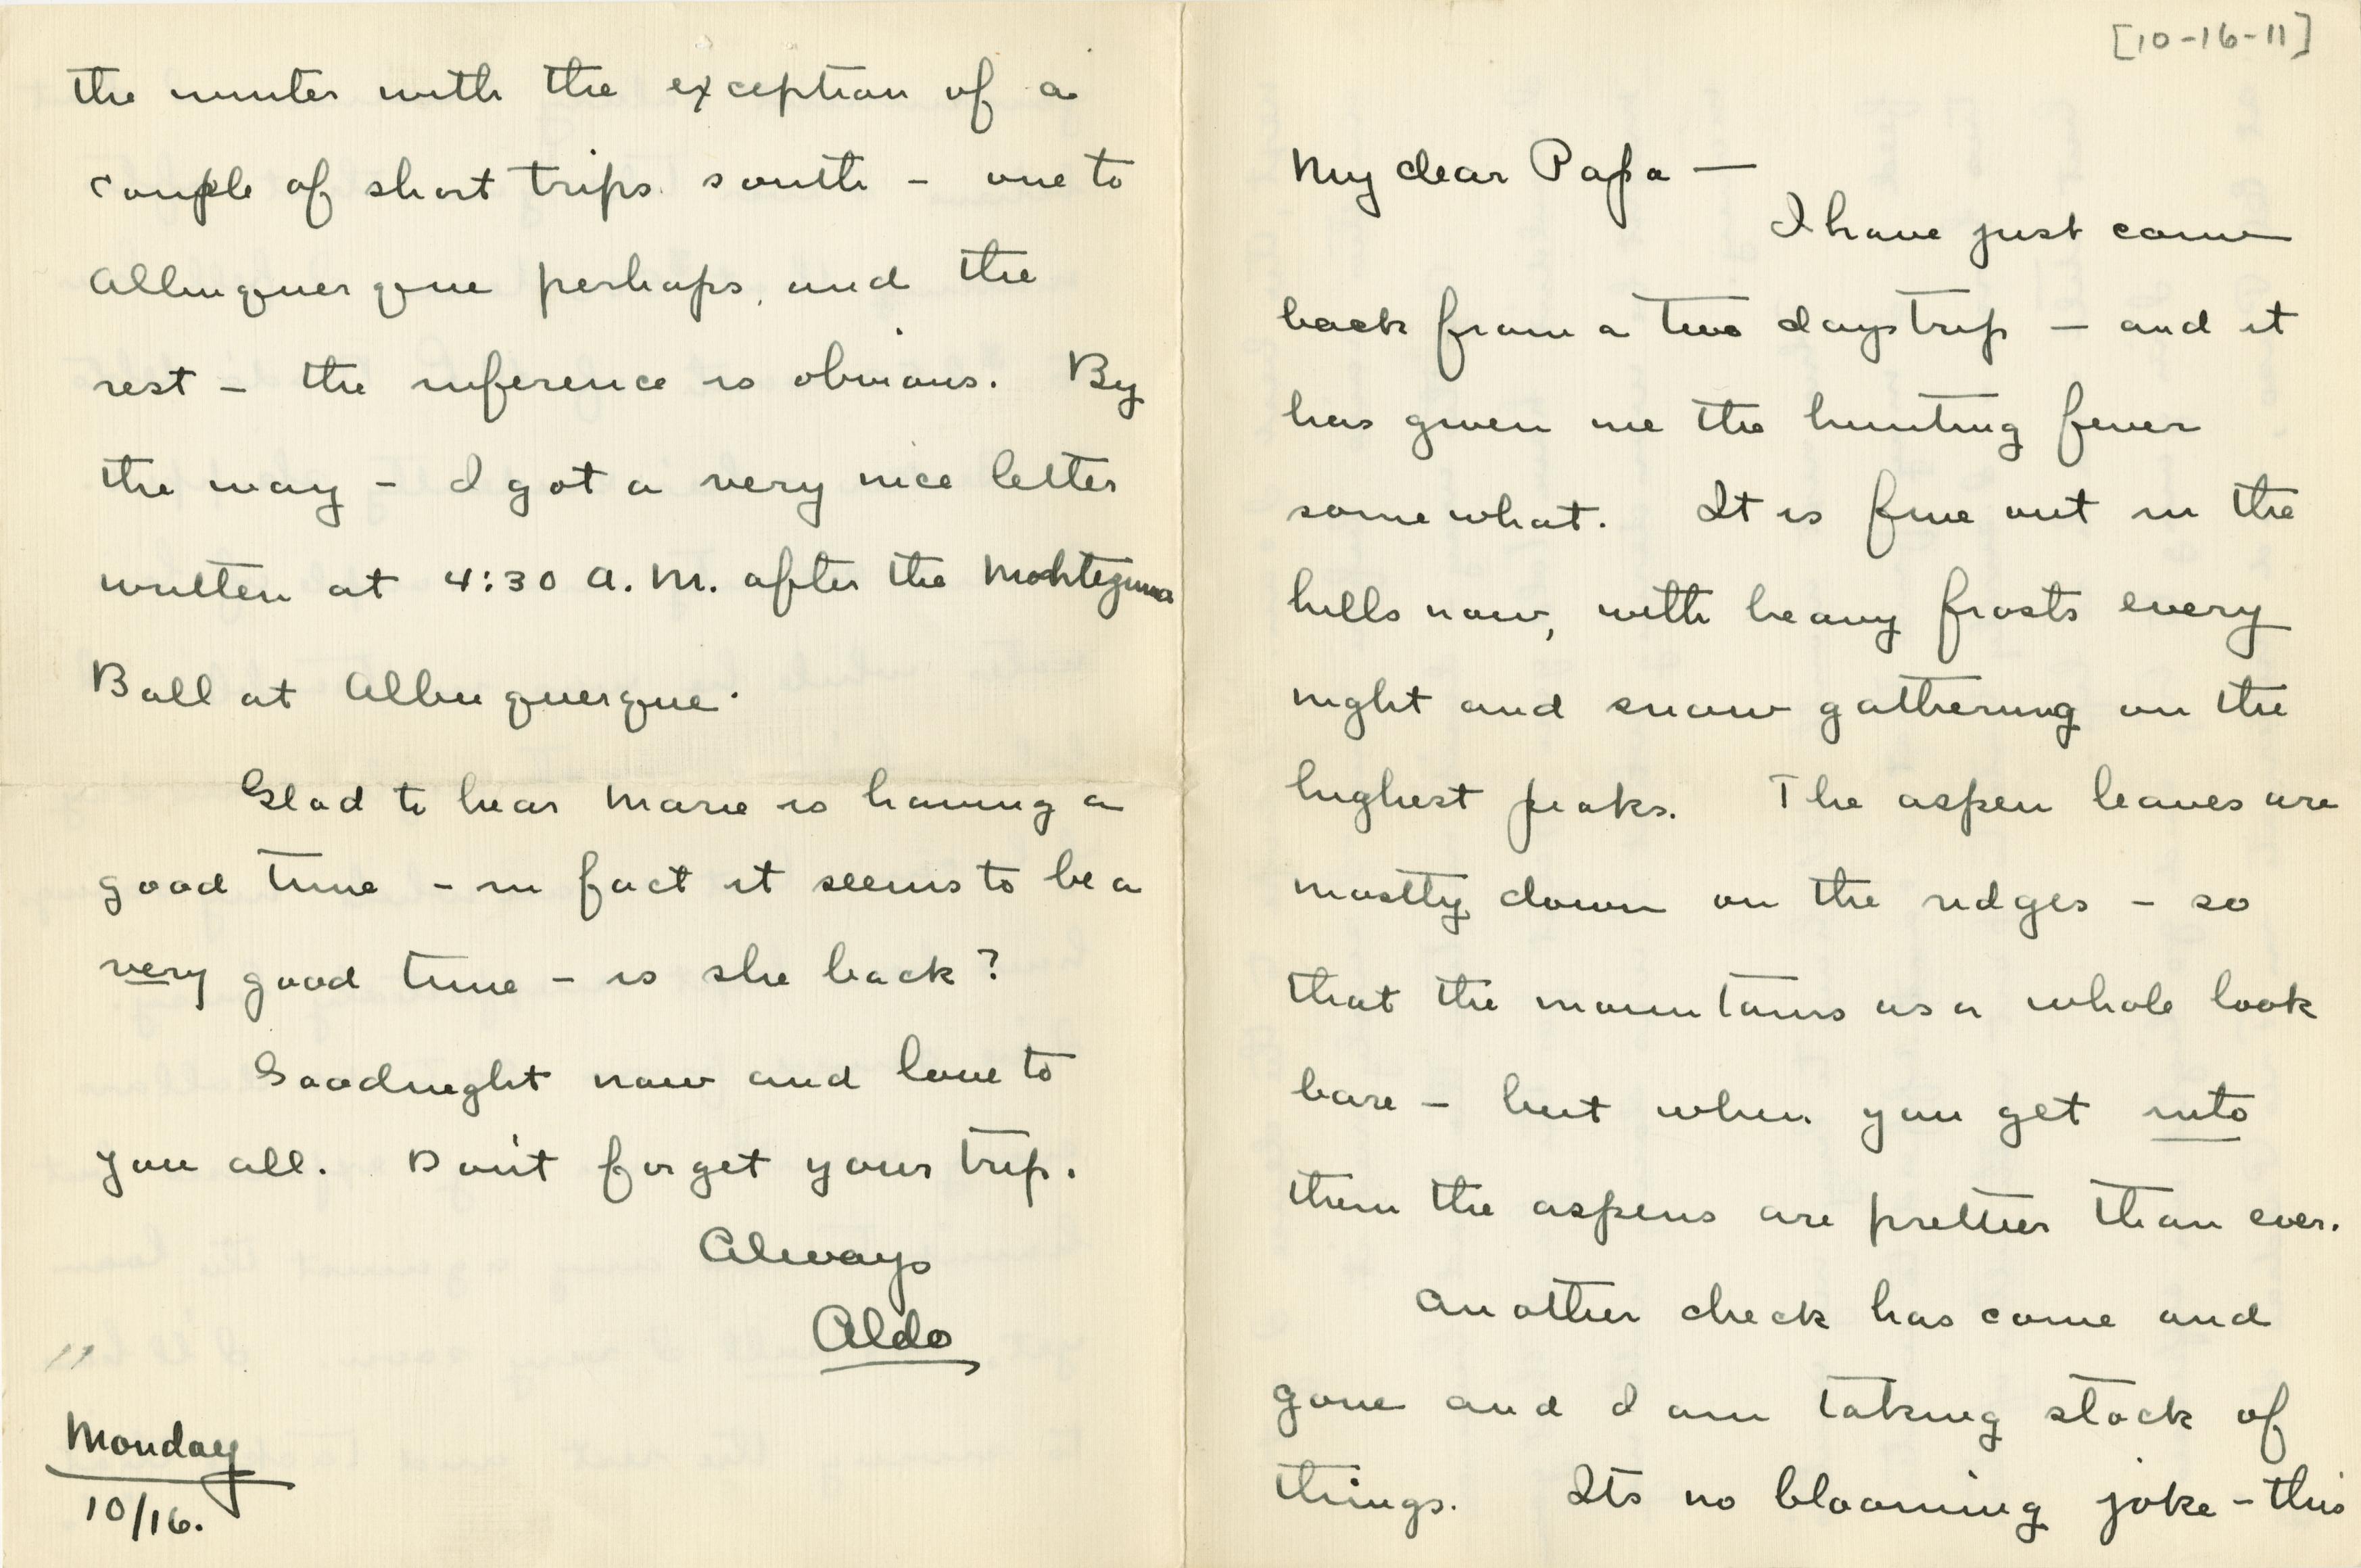 [10-16-11]
My dear Papa —
I have just come
back from a two days trip — and it
has given me the hunting fever
somewhat. It is fine out in the
hills now, with heavy frosts every
night and snow gathering on the
highest peaks. The aspen leaves are
mostly down on the ridges - so
that the mountains as a whole look
bare - but when you get into
them the aspens are prettier than ever.
Another check has come and
gone and I am taking stock of
things. Its no blooming joke - this
the winter with the exception of a
couple of short trips south - one to
Albuquerque perhaps, and the
rest - the inference is obvious. By
the way - I got a very nice letter
written at 4:30 A.M. after the Montezuma
Ball at Albuquerque.
Glad to hear Marie is having a
good time - in fact it seems to be a
very good time - is she back?
Goodnight now and love to
you all. Don't forget your trip.
Always
Aldo
11
Monday
10/16.